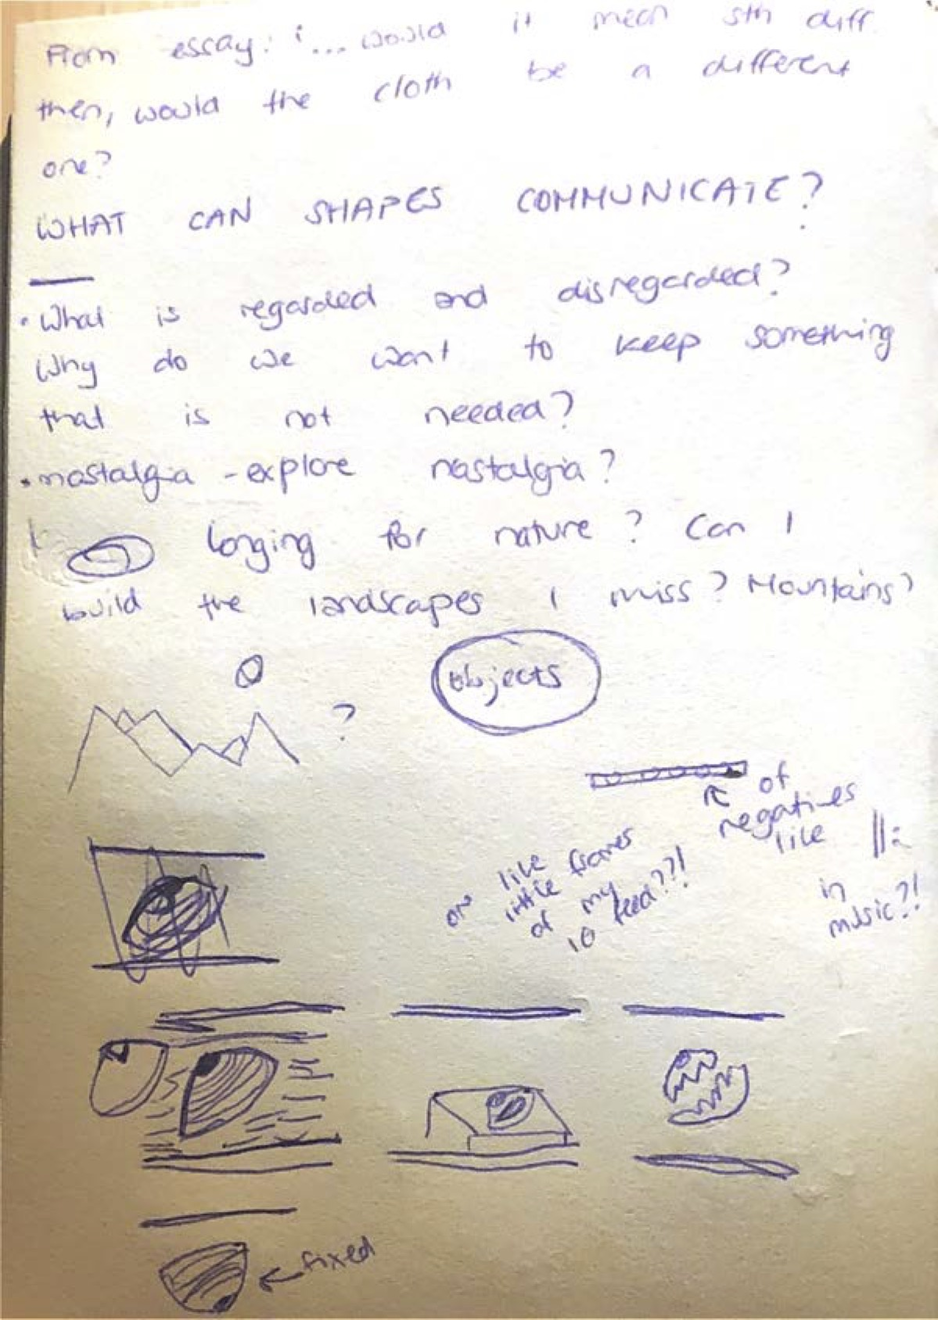 From essay: "... would it mean sth diff.
then, would the cloth be a different
one?
WHAT CAN SHAPES COMMUNICATE?
• What is regarded and disregarded?
Why do we want to keep something
that is not needed?
• nostalgia - explore nostalgia?
longing for nature? Can I
build the landscapes I miss? Mountains?
?
objects
of
negatives
like ||:
in
music?!
like
little frames
of my
feed??!
← fixed